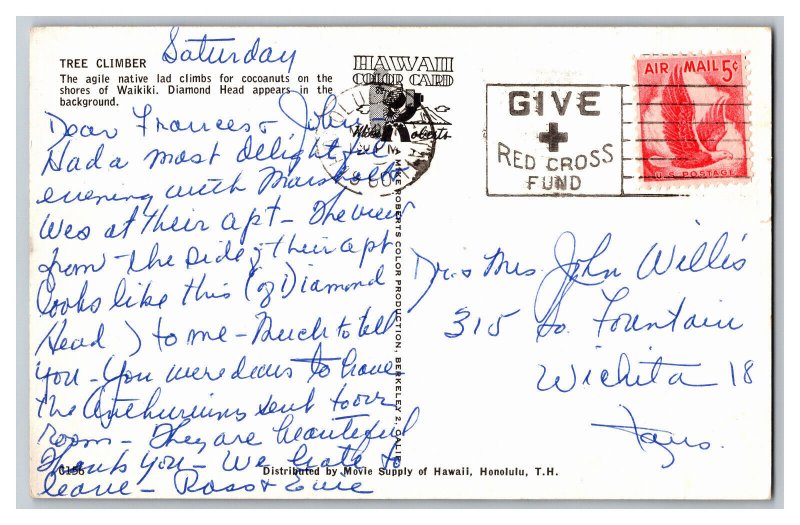 Saturday
TREE CLIMBER
The agile native lad climbs for cocoanuts on the
shores of Waikiki. Diamond Head appears in the
background.
HAWAII
COLOR CARD
Mike Roberts
GIVE
RED CROSS
FUND
AIR MAIL 5¢
U.S. POSTAGE
Dear Frances & John
Had a most delightful
evening with
at their apt – The view
from the side of their apt
looks like this (of Diamond
Head) to me – Much to tell
you – You were dears to have
the Anthuriums sent to our
room – They are beautiful
Thank you – We hate to
leave – Ross &
Dr. & Mrs. John Willis
315 So. Fountain
Wichita 18
MIKE ROBERTS COLOR PRODUCTION, BERKELEY 2, CALIF.
Distributed by Movie Supply of Hawaii, Honolulu, T.H.